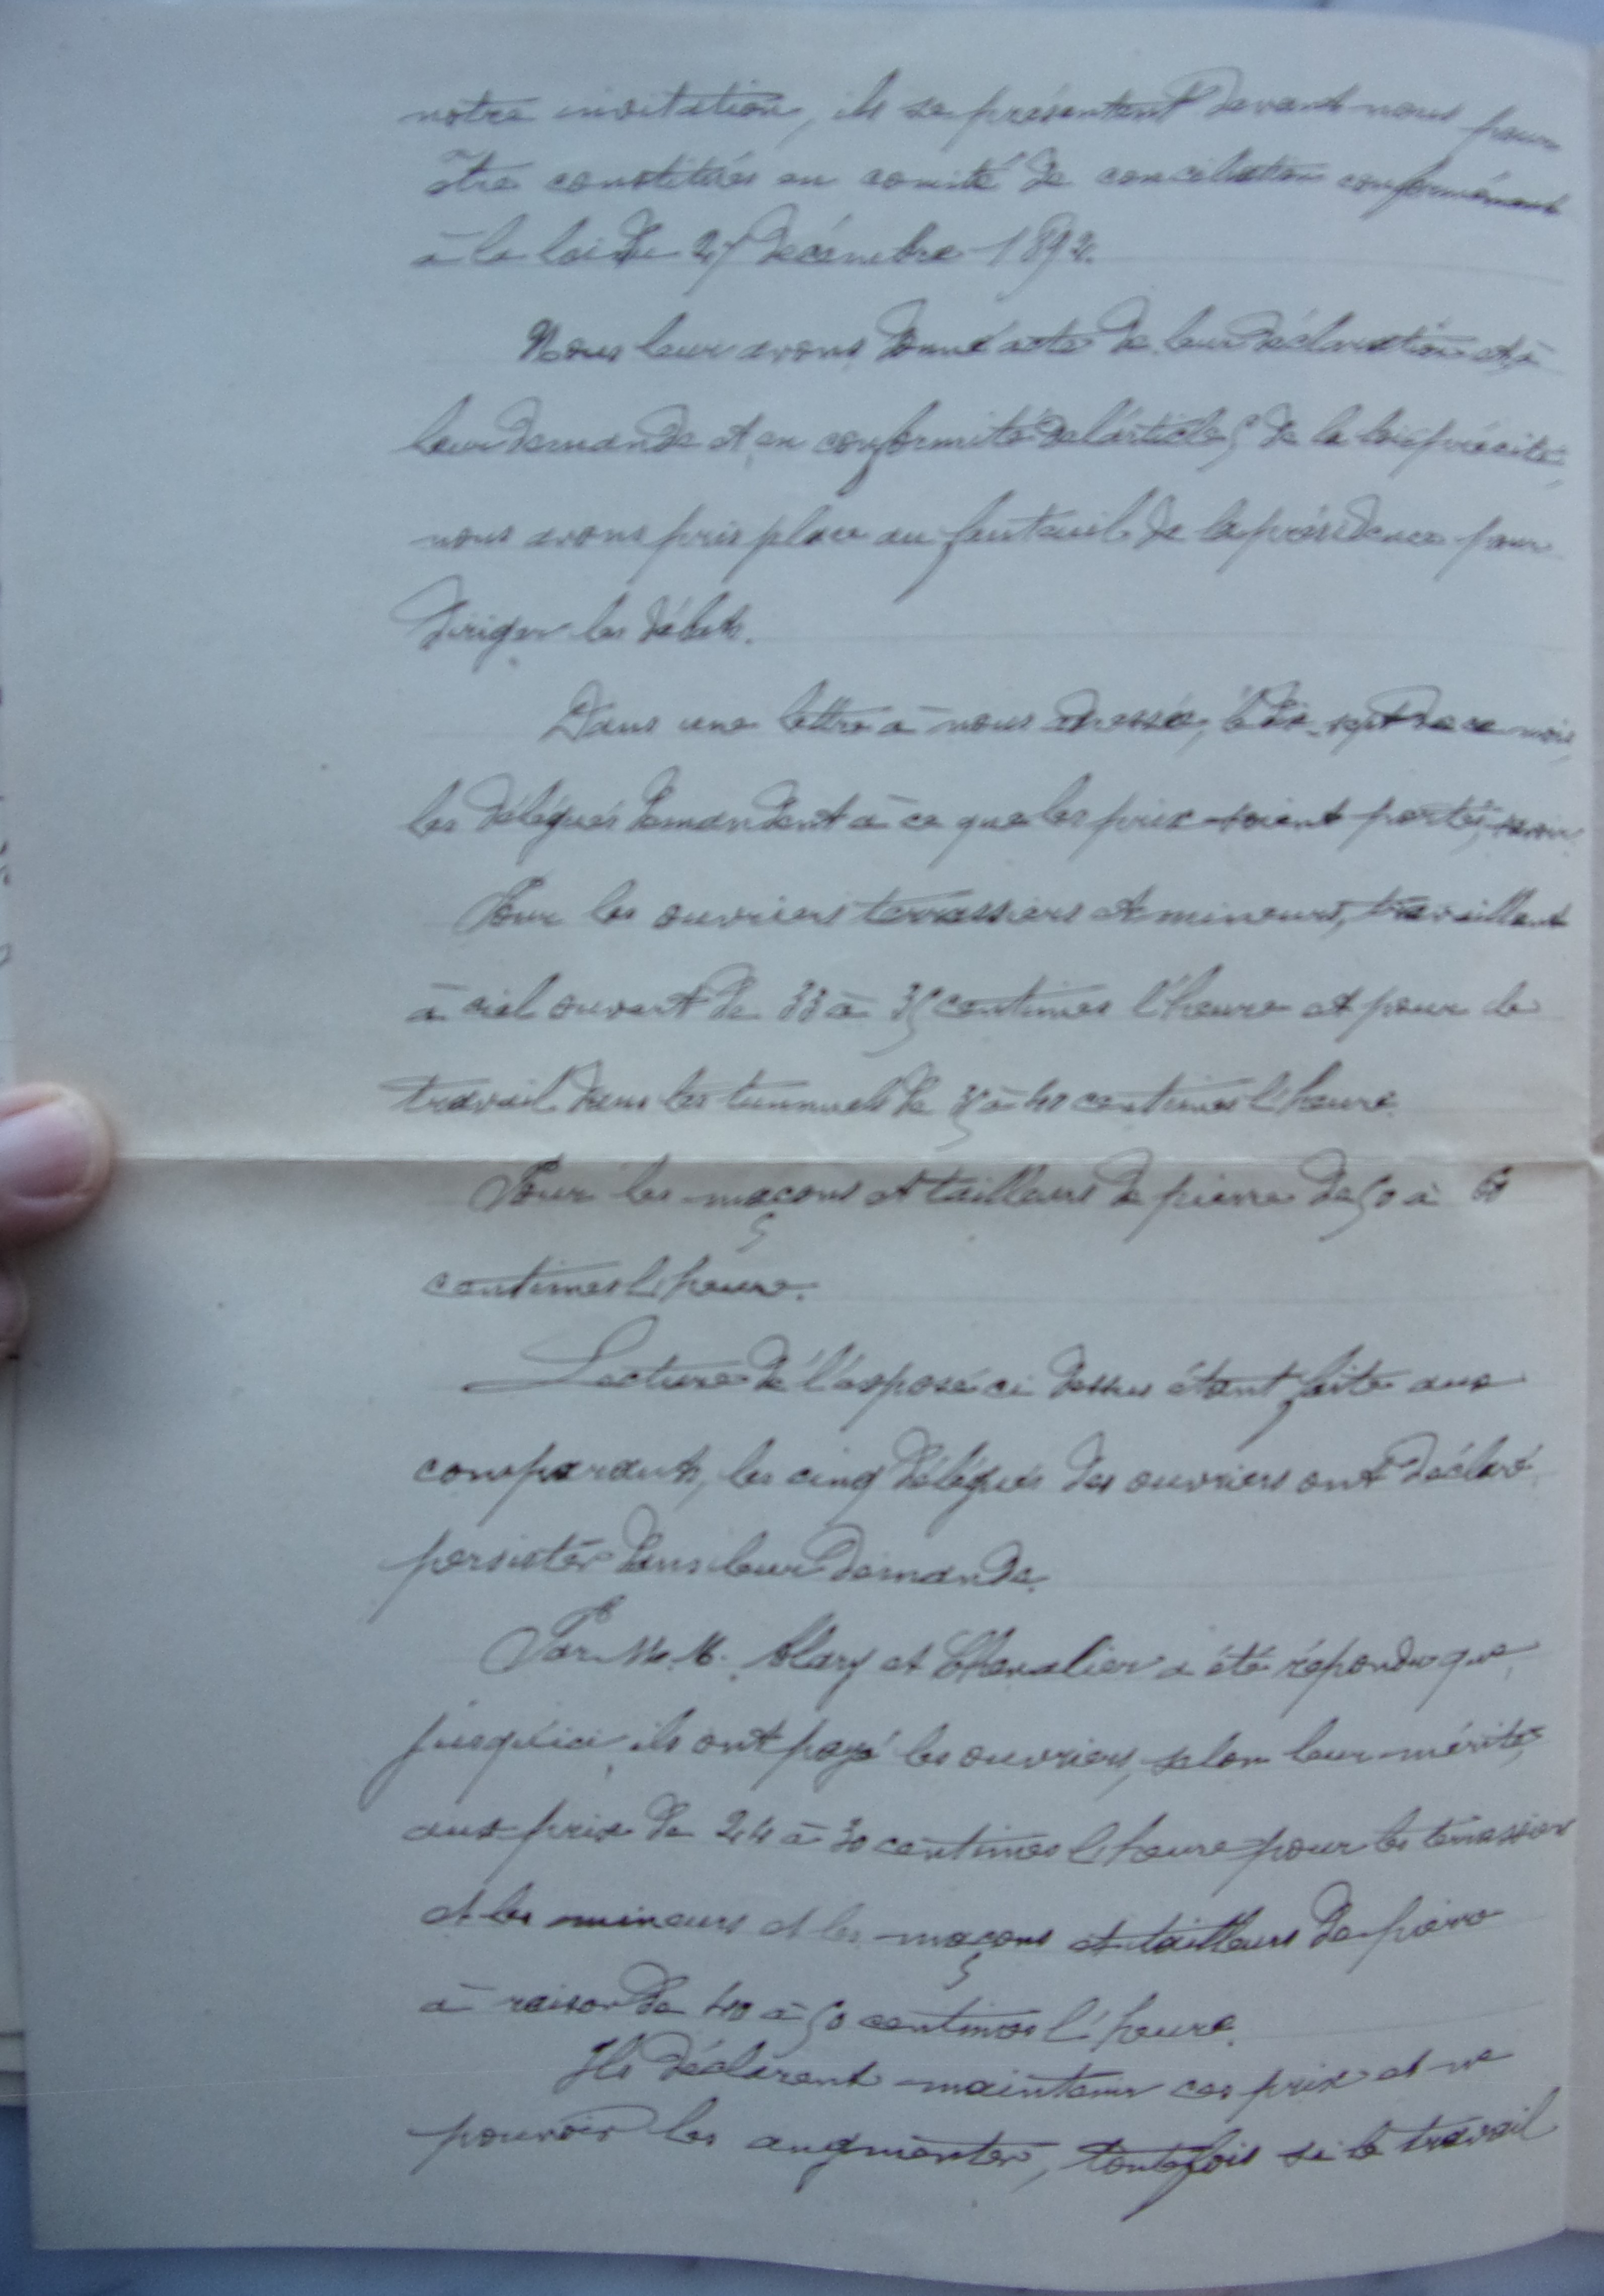 notre invitation, ils se présentent devant nous pour
être constitués en comité de conciliation conformément
à la loi du 27 décembre 1892.
Nous leur avons donné acte de leur déclaration et à
leur demande et en conformité de l'article 5 de la loi précitée
nous avons pris place au fauteuil de la présidence pour
diriger les débats.
Dans une lettre à nous adressée, le dix-sept de ce mois,
les délégués demandent à ce que les prix soient portés, savoir
Pour les ouvriers terrassiers et mineurs, travaillant
à ciel ouvert de 33 à 35 centimes l'heure et pour le
travail dans les tunnels de 35 à 40 centimes l'heure
Pour les maçons et tailleurs de pierre de 50 à 60
centimes l'heure.
Lecture de l'exposé ci dessus étant faite aux
comparants, les cinq délégués des ouvriers ont déclaré
persister dans leur demande.
Par M.M. Alary et Chevalier a été répondu que
jusqu'ici ils ont payé les ouvriers, selon leur mérite,
aux prix de 24 à 30 centimes l'heure pour les terrassiers
et les mineurs et les maçons et tailleurs de pierre
à raison de 40 à 50 centimes l'heure.
Ils déclarent maintenir ces prix et ne
pouvoir les augmenter, toutefois si le travail